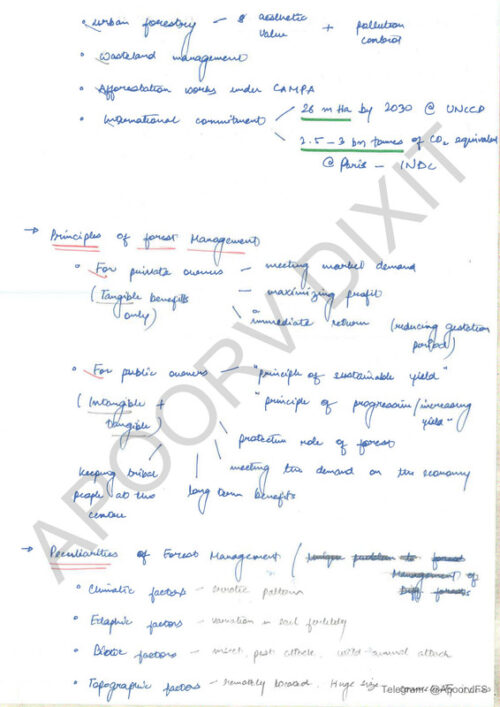 • Urban forestry - aesthetic value + pollution control
• Wasteland management
• Afforestation works under CAMPA
• International commitment
26 m Ha by 2030 @ UNCCD
2.5 - 3 bn tonnes of CO2 equivalent
@ Paris - INDC
→ Principles of forest Management
• For private owners - meeting market demand
(Tangible benefits only) - maximizing profit
immediate return (reducing gestation period)
• For public owners - "principle of sustainable yield"
(Intangible + tangible) "principle of progressive/increasing yield"
protective role of forest
meeting the demand on the economy
long term benefits
Keeping tribal people at the centre
→ Peculiarities of Forest Management / Unique problem to forest
Management of
Diff forests
• Climatic factors - erratic pattern
• Edaphic factors - variation in soil fertility
• Biotic factors - insect, pest attack, wild animal attack
• Topographic factors - remotely located, Huge size
Telegram- @ApoorvIFS
APOORV DIXIT